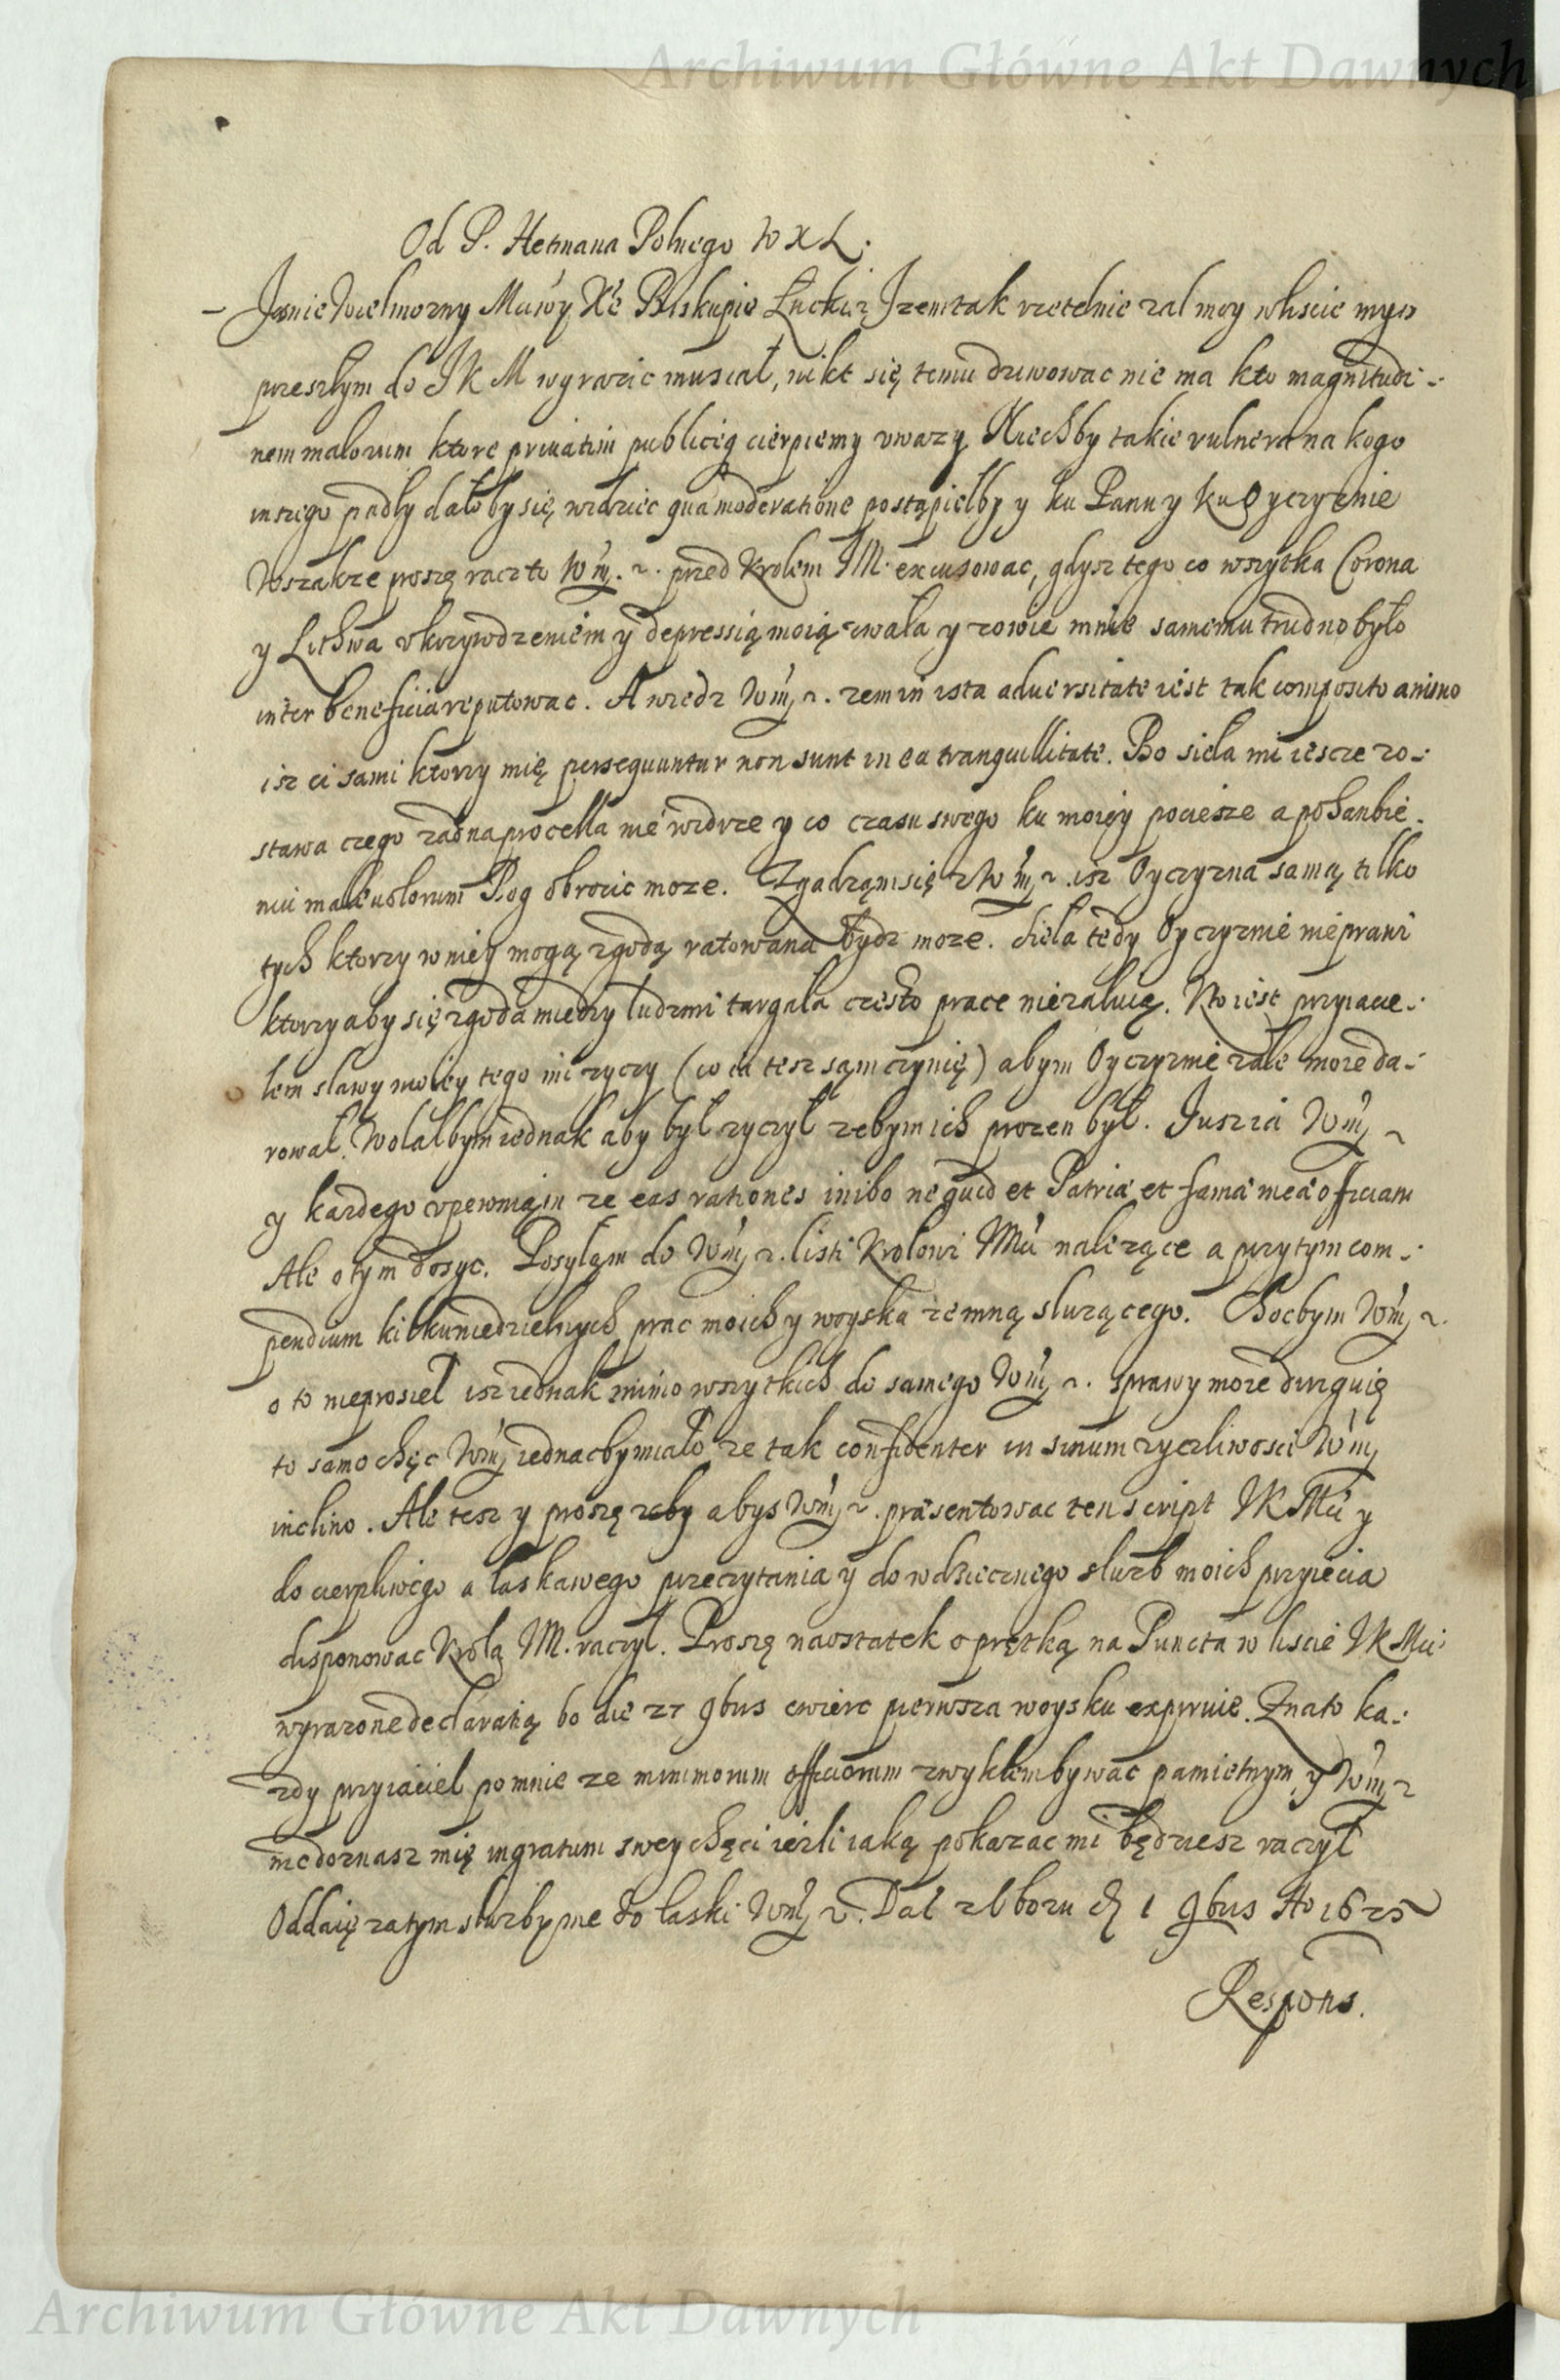 Archiwum Główne Akt Dawnych
Od P. Hetmana Polnego W X L.
Jasnie Wielmozny Mciwy Xże Biskupie Łucki, Izem tak rzetelnie zal moy w liscie mym
przeszłym do JK M wyrazic musiał, nikt się temu dziwowac nie ma kto magnitudi-
nem malorum ktore priuatim publiceq cierpiemy vwazy. Niechby takie vulnera na kogo
inszego padły dałoby się widziec qua moderatione postąpiełby y ku Panu y ku Oyczyznie
Wszakze proszę racz to Wm. przed Krolem JM. excusowac, gdysz tego co wszytka Corona
y Lithwa vkrzywdzeniem y depressią moią zwała y zowie mnie samemu trudno było
inter beneficia reputowac. A wiedz Wm. zem in ista aduersitate iest tak composito animo
isz ci sami ktorzy mię persequuntur non sunt in ea tranquillitate. Bo siela mi iescze zo-
stawa czego zadna procella nie widrze y co czasu swego ku moiey pociesze a pohanbie-
niu maleuolorum Bog obrocic moze. Zgadząm się z Wm. isz Oyczyzna samą tilko
tych ktorzy w niey mogą zgodą ratowana bydz moze. Siela tedy Oyczyznie nieprawi
ktorzy aby się zgoda miedzy ludzmi targała czesto prace nie załuią. Kto iest przyiacie-
lem sławy moiey tego mi zyczy (co ia tesz sąm czynię) abym Oyczyznie zale moie da-
rowal. Wolałbym iednak aby był zyczył zebym ich prozen był. Jusz ia Wm
y kazdego vpewniąm ze eas rationes inibo ne quid et Patriæ et famæ meæ officiam
Ale o tym dosyc. Posyłąm do Wm. listi Krolowi JMci nalezące a przytym com-
pendium kilkuniedzielnych prac moich y woyska ze mną sluzącego. Chocbym Wm.
o to nieprosieł isz iednak mimo wszytkich do samego Wm. sprawy moie diriguię
to samo chęc Wm iednacby miało ze tak confidenter in sinum zyczliwosci Wm
inclino. Ale tesz y proszę zeby abys Wm. præsentowac ten script JK Mci y
do cierpliwego a łaskawego przeczytania y do wdziecznego sluzb moich przyiecia
disponowac Krola JM. raczył. Proszę naostatek o prętką na Puncta w liscie JK Mci
wyrazone declaratią bo die 27 9bris cwierc pierwsza woysku expiruie. Zna to ka-
zdy przyiaciel po mnie ze minimorum officiorum zwykłem bywac pamietnym, y Wm
nie doznasz mię ingratum swey chęci iezli iaką pokazac mi będziesz raczył
Oddaię zatym sluzby me do łaski Wm. Dat z Obozu d 1 9bris Ao 1625
Respons.
Archiwum Główne Akt Dawnych